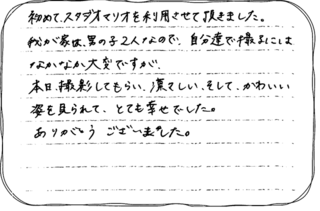 初めて、スタジオマリオを利用させて頂きました。
我が家は、男の子2人なので、自分達で撮るには
なかなか大変ですが、
本日、撮影してもらい、凛々しい、そして、かわいい
姿を見られて、とても幸せでした。
ありがとうございました。